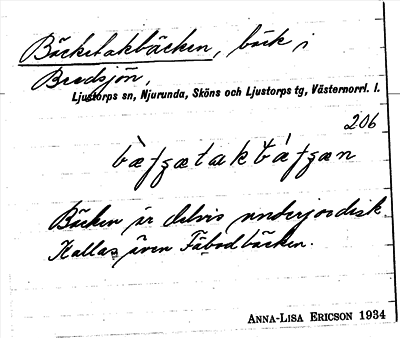 Bäcketakbäcken, bäck i
Bredsjön,
Ljustorps sn, Njurunda, Sköns och Ljustorps tg, Västernorrl. l.
206
Bäcken är delvis underjordisk.
Kallas även Fäbodbäcken.
ANNA-LISA ERICSON 1934